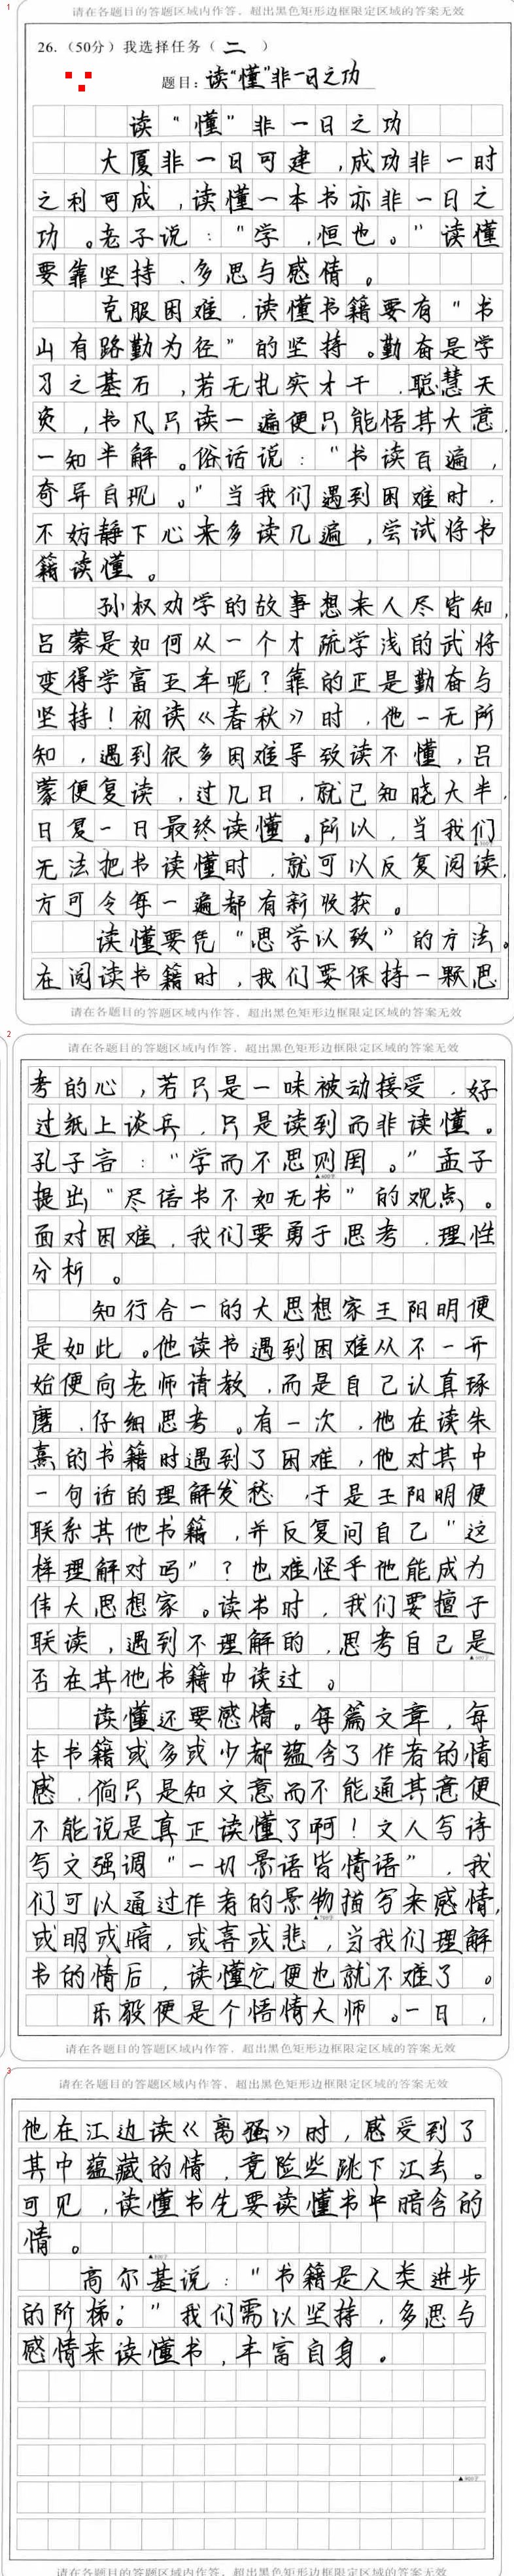 1
请在各题目的答题区域内作答，超出黑色矩形边框限定区域的答案无效
26.（50分）我选择任务（ 二 ）
题目：读“懂”非一日之功
读“懂”非一日之功
大厦非一日可建，成功非一时
之利可成，读懂一本书亦非一日之
功。老子说：“学，恒也。”读懂
要靠坚持、多思与感情。
克服困难，读懂书籍要有“书
山有路勤为径”的坚持。勤奋是学
习之基石，若无扎实才干，聪慧天
资，书凡只读一遍便只能悟其大意，
一知半解。俗话说：“书读百遍，
奇异自现。”当我们遇到困难时，
不妨静下心来多读几遍，尝试将书
籍读懂。
孙权劝学的故事想来人尽皆知，
吕蒙是如何从一个才疏学浅的武将
变得学富五车呢？靠的正是勤奋与
坚持！初读《春秋》时，他一无所
知，遇到很多困难导致读不懂，吕
蒙便复读，过几日，就已知晓大半，
日复一日最终读懂。所以，当我们
无法把书读懂时，就可以反复阅读，
方可令每一遍都有新收获。
读懂要凭“思学以致”的方法。
在阅读书籍时，我们要保持一颗思
请在各题目的答题区域内作答，超出黑色矩形边框限定区域的答案无效
2
请在各题目的答题区域内作答，超出黑色矩形边框限定区域的答案无效
考的心，若只是一味被动接受，好
过纸上谈兵，只是读到而非读懂。
孔子言：“学而不思则罔。”孟子
▲400字
提出“尽信书不如无书”的观点。
面对困难，我们要勇于思考，理性
分析。
知行合一的大思想家王阳明便
是如此。他读书遇到困难从不一开
始便向老师请教，而是自己认真琢
磨，仔细思考。有一次，他在读朱
熹的书籍时遇到了困难，他对其中
一句话的理解发愁，于是王阳明便
联系其他书籍，并反复问自己“这
样理解对吗”？也难怪乎他能成为
伟大思想家。读书时，我们要擅于
联读，遇到不理解的，思考自己是
否在其他书籍中读过。
读懂还要感情。每篇文章，每
本书籍或多或少都蕴含了作者的情
感，倘只是知文意而不能通其意便
不能说是真正读懂了啊！文人写诗
写文强调“一切景语皆情语”，我
们可以通过作者的景物描写来感情，
或明或暗，或喜或悲，当我们理解
书的情后，读懂它便也就不难了。
乐毅便是个悟情大师。一日，
请在各题目的答题区域内作答，超出黑色矩形边框限定区域的答案无效
3
请在各题目的答题区域内作答，超出黑色矩形边框限定区域的答案无效
他在江边读《离骚》时，感受到了
其中蕴藏的情，竟险些跳下江去。
可见，读懂书先要读懂书中暗含的
情。
高尔基说：“书籍是人类进步
的阶梯。”我们需以坚持，多思与
感情来读懂书，丰富自身。
请在各题目的答题区域内作答，超出黑色矩形边框限定区域的答案无效